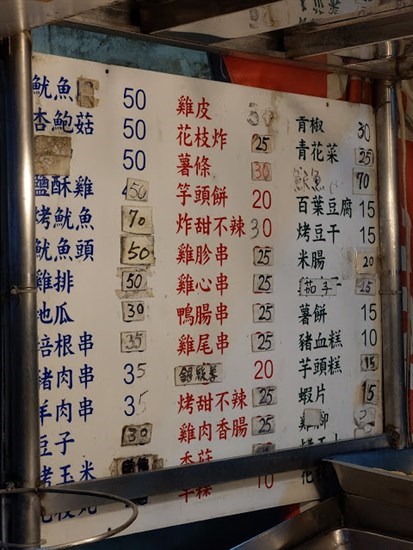 魷魚 50
杏鮑菇 50
50
鹽酥雞 50
烤魷魚 70
魷魚頭 50
雞排 50
地瓜 30
培根串 35
豬肉串 35
羊肉串 35
豆子 30
烤玉米
雞皮
花枝炸 25
薯條 30
竽頭餅 20
炸甜不辣 30
雞胗串 25
雞心串 25
鴨腸串 25
雞尾串 25
20
烤甜不辣 25
雞肉香腸 25
香菇
貢椒 30
青花菜 25
魷魚 70
百葉豆腐 15
烤豆干 15
米腸 20
茄子 25
薯餅 15
豬血糕 10
芋頭糕 15
蝦片 15